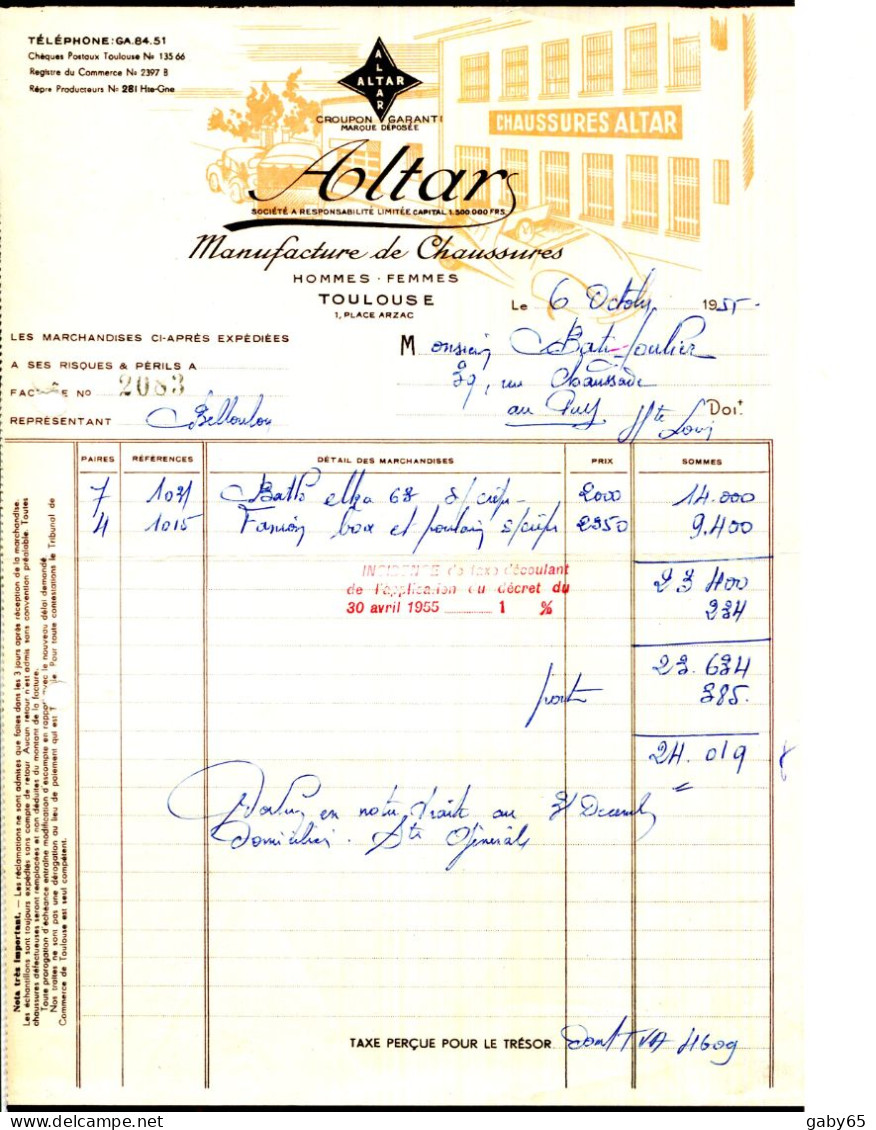 TÉLÉPHONE: GA.84.51
Chèques Postaux Toulouse No 135 66
Registre du Commerce No 2397 B
Répre Producteurs No 281 Hte-Gne
ALTAR
ALTAR
CROUPON GARANTI
MARQUE DÉPOSÉE
CHAUSSURES ALTAR
Altar
SOCIÉTÉ A RESPONSABILITÉ LIMITÉE CAPITAL 1.500.000 FRS
Manufacture de Chaussures
HOMMES - FEMMES
TOULOUSE
1, PLACE ARZAC
Le 6 Octobre 1955
LES MARCHANDISES CI-APRÈS EXPÉDIÉES
A SES RISQUES & PÉRILS A
FACTURE No 2083
REPRÉSENTANT
Monsieur Bati-Foulier
39, rue Chaussade
au Puy Hte Loire Doit
PAIRES RÉFÉRENCES DÉTAIL DES MARCHANDISES PRIX SOMMES
7 1031 2000 14.000
4 1015 box et 2350 9.400
INCIDENCE de taxe découlant
de l'application du décret du
30 avril 1955 1 %
23 400
234
23.634
port 385.
24.019
Valeur en notre traite au 31 Décembre
Domicilié. Sté Générale
TAXE PERÇUE POUR LE TRÉSOR dont TVA
Nota très important. — Les réclamations ne sont admises que faites dans les 3 jours après réception de la marchandise.
Les échantillons sont toujours expédiés sans compte de retour. Aucun retour n'est admis sans convention préalable. Toutes
chaussures défectueuses seront remplacées et non déduites du montant de la facture.
Toute prorogation d'échéance entraîne modification d'escompte en rapport avec le nouveau délai demandé.
Nos traites ne sont pas une dérogation au lieu de paiement qui est Pour toute contestations le Tribunal de
Commerce de Toulouse est seul compétent.
gaby65